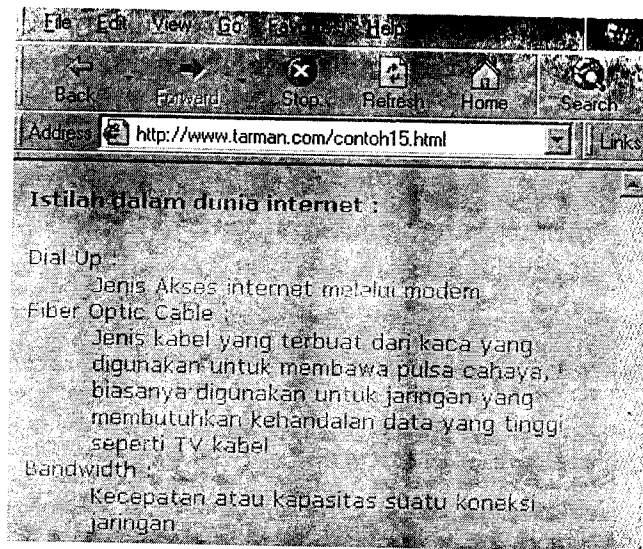 File Edit View Go Favorites Help
Back Forward Stop Refresh Home Search
Address http://www.tarman.com/contoh15.html Links
Istilah dalam dunia internet :
Dial Up :
Jenis Akses internet melalui modem
Fiber Optic Cable :
Jenis kabel yang terbuat dari kaca yang
digunakan untuk membawa pulsa cahaya,
biasanya digunakan untuk jaringan yang
membutuhkan kehandalan data yang tinggi
seperti TV kabel
Bandwidth :
Kecepatan atau kapasitas suatu koneksi
jaringan